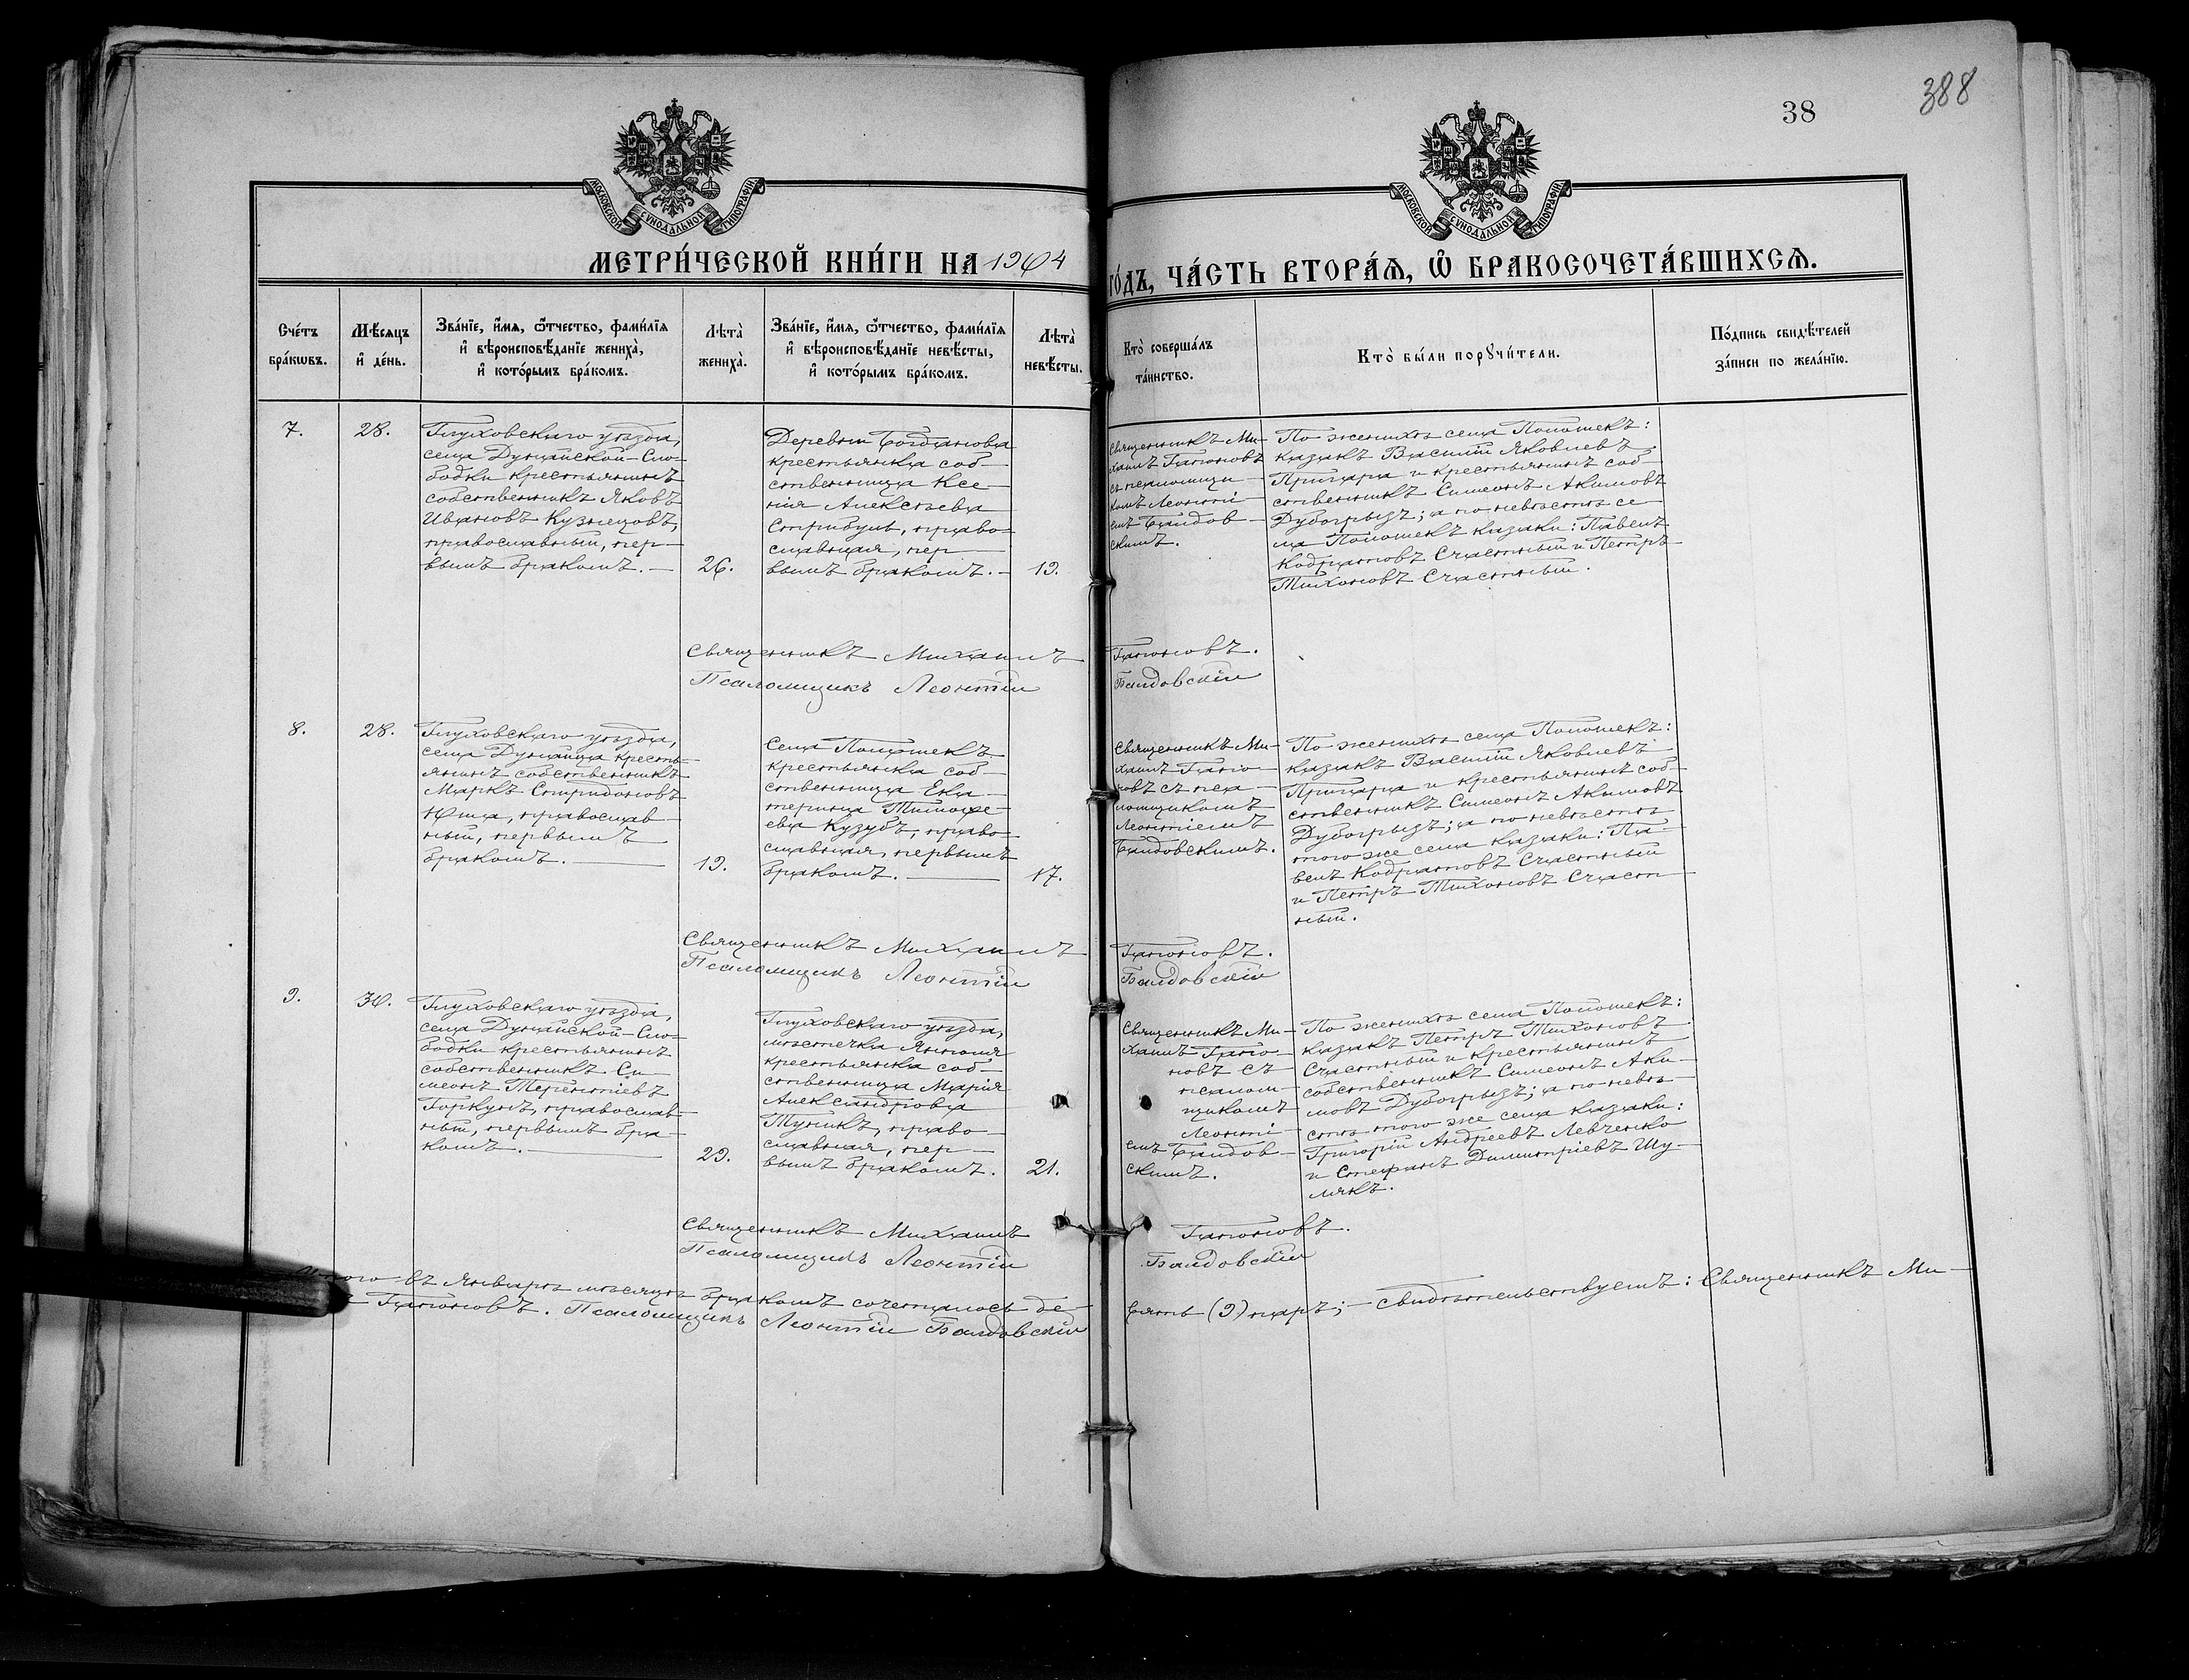 388
38
МОСКОВСКОЙ СѴНОДАЛЬНОЙ ТИПОГРАФІИ
МОСКОВСКОЙ СѴНОДАЛЬНОЙ ТИПОГРАФІИ
МЕТРИ́ЧЕСКОЙ КНИ́ГИ НА 1904
ГО́ДЪ, ЧА́СТЬ ВТОРА́Ѧ, Ѡ҆ БРАКОСОЧЕТА́ВШИХСѦ.
Сче́тъ бра́кѡвъ.
Мѣ́сяцъ и҆ де́нь.
Зва́нїе, и҆́мѧ, ѻ҆́тчество, фами́лїѧ и҆ вѣроисповѣ́данїе жениха̀, и҆ кото́рымъ бра́комъ.
Лѣта̀ жениха̀.
Зва́нїе, и҆́мѧ, ѻ҆́тчество, фами́лїѧ и҆ вѣроисповѣ́данїе невѣ́сты, и҆ кото́рымъ бра́комъ.
Лѣта̀ невѣ́сты.
Кто̀ соверша́лъ та́инство.
Кто̀ бы́ли порꙋчи́тели.
По́дпись свидѣ́телей за́писи по жела́нїю.
7.
28.
Глуховскаго уѣзда,
села Дунайской-Сло-
бодки крестьянинъ
собственникъ Яковъ
Ивановъ Кузнецовъ,
православный, пер-
вымъ бракомъ. —
26.
Деревни Богдановка
крестьянка соб-
ственница Ксе-
нія Алексѣева
Стрибуль, право-
славная, пер-
вымъ бракомъ. —
19.
Священникъ Ми-
хаилъ Гапоновъ
съ псаломщи-
комъ Леонті-
емъ Балдов-
скимъ.
По женихѣ села Полошекъ:
казакъ Василій Яковлевъ
Прищепа и крестьянинъ соб-
ственникъ Симеонъ Акимовъ
Дубогрызъ; а по невѣстѣ се-
ла Полошекъ казаки: Павелъ
Кодратовъ Счастный и Петръ
Тихоновъ Счастный.
Священникъ Михаилъ Гапоновъ.
Псаломщикъ Леонтій Балдовскій
8.
28.
Глуховскаго уѣзда,
села Дунайца кресть-
янинъ собственникъ
Маркъ Спиридоновъ
Юша, православ-
ный, первымъ
бракомъ. —
19.
Села Полошекъ
крестьянка соб-
ственница Ека-
терина Тимофе-
ева Кузубъ, право-
славная, первымъ
бракомъ. —
17.
Священникъ Ми-
хаилъ Гапо-
новъ съ пса-
ломщикомъ
Леонтіемъ
Балдовскимъ.
По женихѣ села Полошекъ:
казакъ Василій Яковлевъ
Прищепа и крестьянинъ соб-
ственникъ Симеонъ Акимовъ
Дубогрызъ; а по невѣстѣ
того же села казаки: Па-
велъ Кодратовъ Счастный
и Петръ Тихоновъ Счаст-
ный.
Священникъ Михаилъ Гапоновъ.
Псаломщикъ Леонтій Балдовскій
9.
30.
Глуховскаго уѣзда,
села Дунайской-Сло-
бодки крестьянинъ
собственникъ Си-
меонъ Терентіевъ
Горкунъ, православ-
ный, первымъ бра-
комъ. —
29.
Глуховскаго уѣзда,
мѣстечка Янполя
крестьянка соб-
ственница Марія
Александрова
Тупикъ, право-
славная, пер-
вымъ бракомъ.
21.
Священникъ Ми-
хаилъ Гапо-
новъ съ
псалом-
щикомъ
Леонті-
емъ Балдов-
скимъ.
По женихѣ села Полошекъ:
казакъ Петръ Тихоновъ
Счастный и крестьянинъ
собственникъ Симеонъ Аки-
мовъ Дубогрызъ; а по невѣ-
стѣ того же села казаки:
Григорій Андреевъ Левченко
и Стефанъ Димитріевъ Шу-
лякъ.
Священникъ Михаилъ Гапоновъ.
Псаломщикъ Леонтій Балдовскій
въ Январѣ мѣсяцѣ бракомъ сочеталось де-
вять (9) паръ; — свидѣтельствуетъ: Священникъ Ми-
Гапоновъ. Псаломщикъ Леонтій Балдовскій